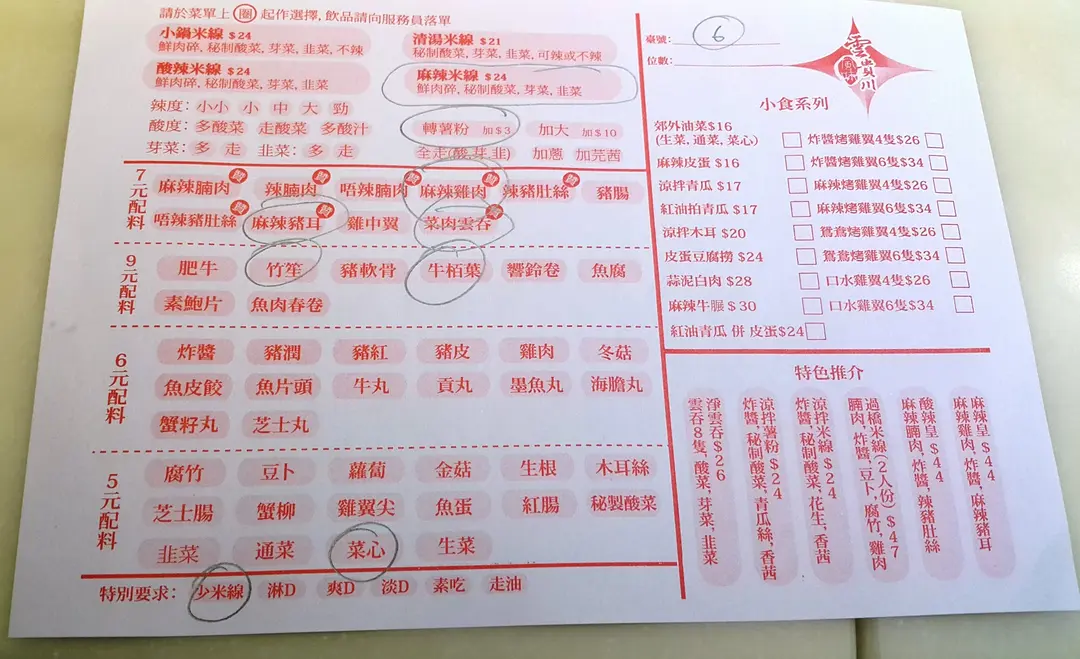 請於菜單上 圈 起作選擇, 飲品請向服務員落單
小鍋米線 $24
鮮肉碎, 秘制酸菜, 芽菜, 韭菜, 不辣
清湯米線 $21
秘制酸菜, 芽菜, 韭菜, 可辣或不辣
酸辣米線 $24
鮮肉碎, 秘制酸菜, 芽菜, 韭菜
麻辣米線 $24
鮮肉碎, 秘制酸菜, 芽菜, 韭菜
辣度: 小小 小 中 大 勁
酸度: 多酸菜 走酸菜 多酸汁
轉薯粉 加$3 加大 加$10
芽菜: 多 走 韭菜: 多 走
全走(酸,芽,韭) 加蔥 加芫茜
7元配料
麻辣腩肉 辣腩肉 唔辣腩肉 麻辣雞肉 辣豬肚絲 豬腸
唔辣豬肚絲 麻辣豬耳 雞中翼 菜肉雲吞
9元配料
肥牛 竹笙 豬軟骨 牛栢葉 響鈴卷 魚腐
素鮑片 魚肉春卷
6元配料
炸醬 豬潤 豬紅 豬皮 雞肉 冬菇
魚皮餃 魚片頭 牛丸 貢丸 墨魚丸 海膽丸
蟹籽丸 芝士丸
5元配料
腐竹 豆卜 蘿蔔 金菇 生根 木耳絲
芝士腸 蟹柳 雞翼尖 魚蛋 紅腸 秘製酸菜
韭菜 通菜 菜心 生菜
特別要求: 少米線 淋D 爽D 淡D 素吃 走油
臺號: 6
位數:
雲貴川
風味
小食系列
郊外油菜$16
(生菜, 通菜, 菜心)
炸醬烤雞翼4隻$26
麻辣皮蛋 $16
炸醬烤雞翼6隻$34
涼拌青瓜 $17
麻辣烤雞翼4隻$26
紅油拍青瓜 $17
麻辣烤雞翼6隻$34
涼拌木耳 $20
鴛鴦烤雞翼4隻$26
皮蛋豆腐撈 $24
鴛鴦烤雞翼6隻$34
蒜泥白肉 $28
口水雞翼4隻$26
麻辣牛𦟌 $30
口水雞翼6隻$34
紅油青瓜 併 皮蛋$24
特色推介
麻辣皇 $44
麻辣雞肉, 炸醬, 麻辣豬耳
酸辣皇 $44
麻辣腩肉, 炸醬, 辣豬肚絲
過橋米線(2人份) $47
腩肉, 炸醬, 豆卜, 腐竹, 雞肉
涼拌米線 $24
炸醬, 秘制酸菜, 花生, 香茜
涼拌薯粉 $24
炸醬, 秘制酸菜, 青瓜絲, 香茜
淨雲吞 $26
雲吞8隻, 酸菜, 芽菜, 韭菜